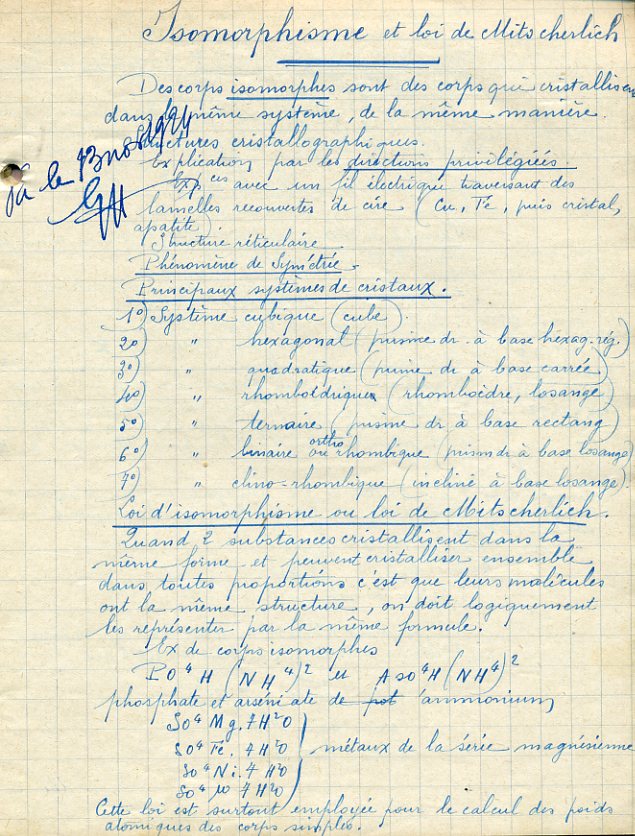 Isomorphisme et loi de Mitscherlich
Des corps isomorphes sont des corps qui cristallisent
dans le même système, de la même manière.
Structures cristallographiques.
Explication par les directions privilégiées.
Exp ces avec un fil électrique traversant des
lamelles recouvertes de cire (Cu, Fé, puis cristal,
apatite).
Structure réticulaire
Phénomène de Symétrie.
Principaux systèmes de cristaux.
1°) Système cubique (cube).
2°) " hexagonal (prisme dr. à base hexag. rég.)
3°) " quadratique (prisme dr à base carrée)
4°) " rhomboïdrique (rhomboïdre, losange)
5°) " ternaire (prisme dr à base rectang)
6°) " binaire ou orthorhombique (prism dr à base losange)
7°) " clino-rhombique (incliné à base losange).
Loi d'isomorphisme ou loi de Mitscherlich.
Quand 2 substances cristallisent dans la
même forme et peuvent cristalliser ensemble
dans toutes proportions c'est que leurs molécules
ont la même structure, on doit logiquement
les représenter par la même formule.
Ex de corps isomorphes
PO⁴H (NH⁴)² et AsO⁴H (NH⁴)²
phosphate et arséniate de pot d'ammonium
SO⁴ Mg. 7H²O
SO⁴ Fé. 7H²O
SO⁴ Ni. 7H²O
SO⁴ 7H²O
métaux de la série magnésienne
Cette loi est surtout employée pour le calcul des poids
atomiques des corps simples.
le 13 nov 1941